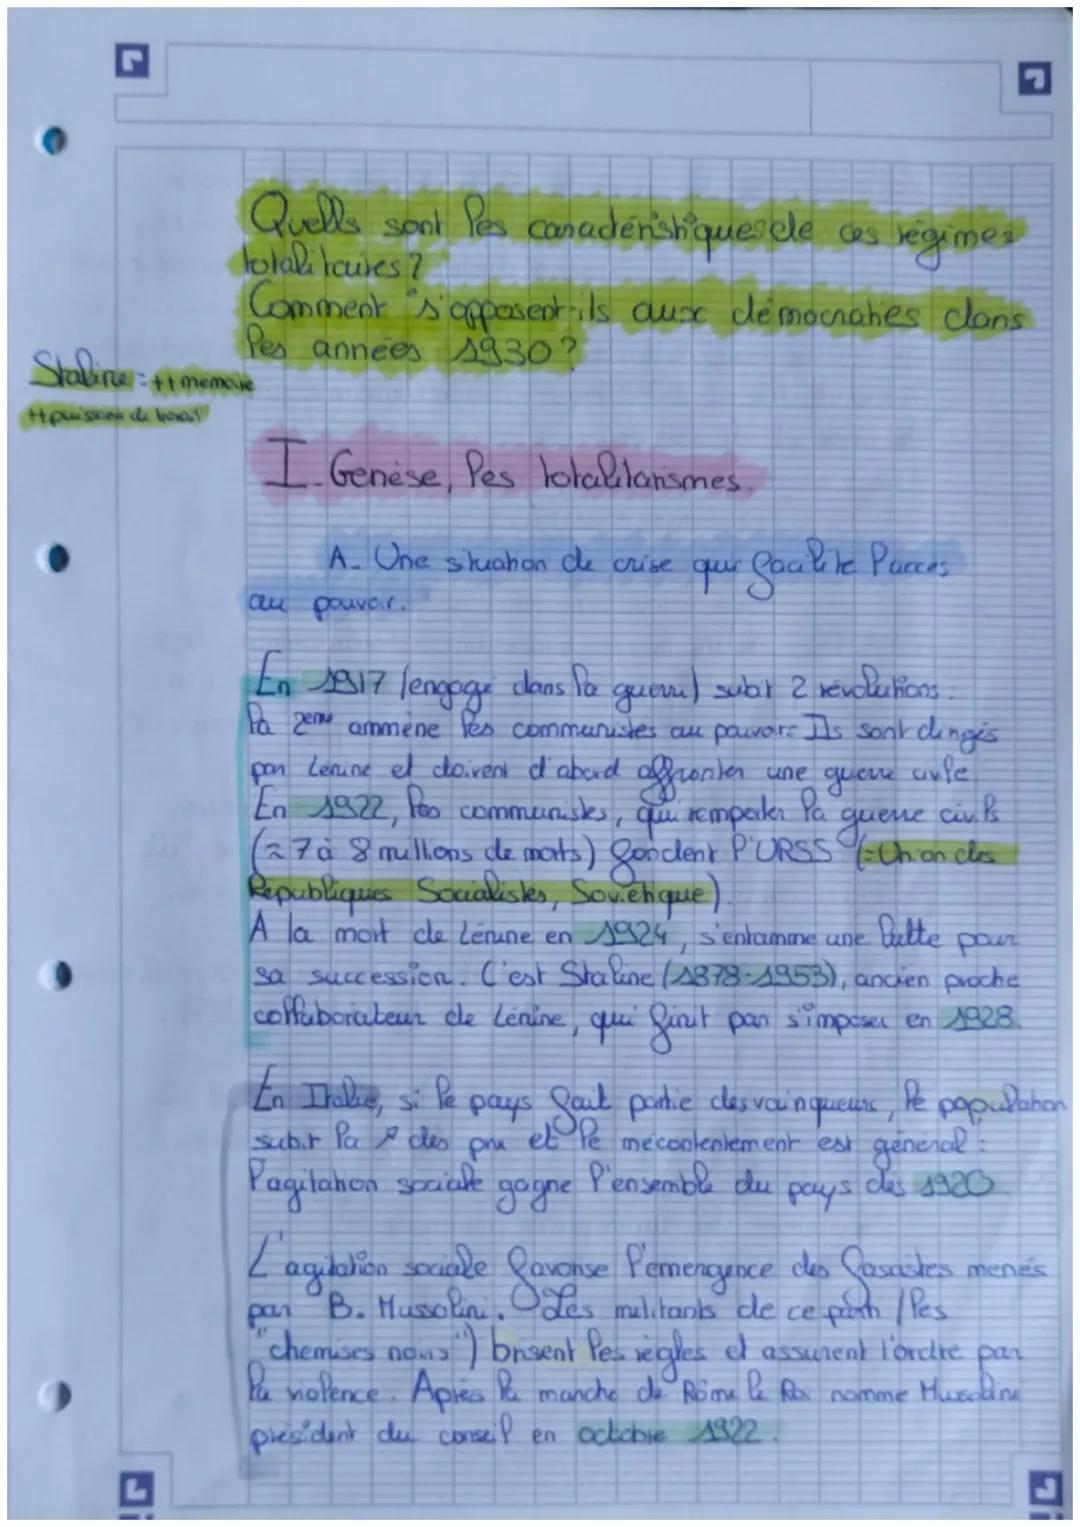 Quells sont les caractéristiques de ces régimes
totalitaires ?
Comment s'opposent-ils aux démocraties dans
les années 1930 ?
Staline = ++ mémoire
++ puission de travail
I - Genèse, les totalitarismes.
A - Une situation de crise qui facilite l'accès
au pouvoir.
En 1917 (engagé dans la guerre) subit 2 révolutions :
la 2eme ammène les communistes au pouvoir. Ils sont dirigés
par Lénine et doivent d'abord affronter une guerre civile
En 1922, les communistes, qui remporter la guerre civile
(≈ 7 à 8 millions de morts) fondent l'URSS (= Union des
Républiques Socialistes, Soviétique)
A la mort de Lénine en 1924, s'entamme une lutte pour
sa succession. C'est Staline (1878-1953), ancien proche
collaborateur de Lénine, qui finit par s'imposer en 1928.
En Italie, si le pays fait partie des vainqueurs, le population
subit la ↗ des prix et le mécontentement est général :
l'agitation sociale gagne l'ensemble du pays dès 1920.
L'agitation sociale favorise l'émergence des fascistes menés
par B. Mussolini. Les militants de ce parti (les
"chemises noires") brisent les règles et assurent l'ordre par
la violence. Après la marche de Rome le Roi nomme Mussolini
président du conseil en octobre 1922.